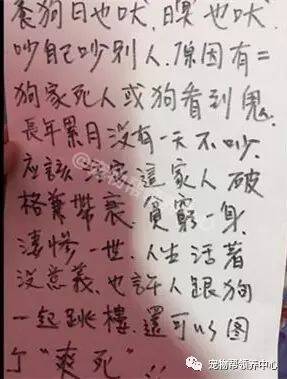 養狗日也吠,暝也吠
吵自己吵別人.原因有二
狗家死人或狗看到鬼.
長年累月沒有一天不吵.
應該 這家人破
格兼帶衰.貧窮一身.
淒慘一世.人生活著
沒意義.也許人跟狗
一起跳樓.還可以圖
个"爽死"!!
宠物帮领养中心